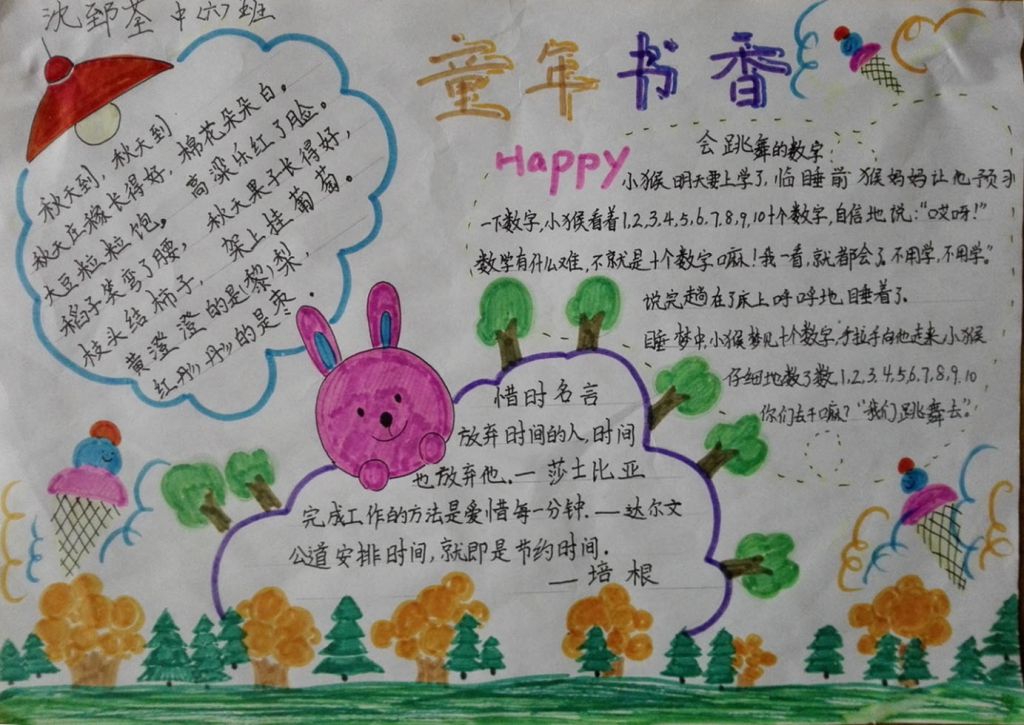 沈郅荃 中(六)班
童年书香
Happy
秋天到,秋天到
秋天庄稼长得好,棉花朵朵白。
大豆粒粒饱。高粱乐红了脸。
稻子笑弯了腰,秋天果子长得好,
枝头结柿子,架上挂葡萄。
黄澄澄的是(黎)梨,
红彤(丹)的是枣。
会跳舞的数字
小猴明天要上学了,临睡前猴妈妈让他预习
一下数字,小猴看着1,2,3,4,5,6,7,8,9,10十个数字,自信地说:“哎呀!”
数学有什么难,不就是十个数字嘛!我一看,就都会了,不用学,不用学。”
说完趟在了床上呼呼地睡着了.
睡梦中,小猴梦见十个数字,手拉手向他走来,小猴
仔细地数了数,1,2,3,4,5,6,7,8,9,10
你们去干嘛?“我们跳舞去”。
惜时名言
放弃时间的人,时间
也放弃他.—莎士比亚
完成工作的方法是爱惜每一分钟.—达尔文
公道安排时间,就即是节约时间.
—培根